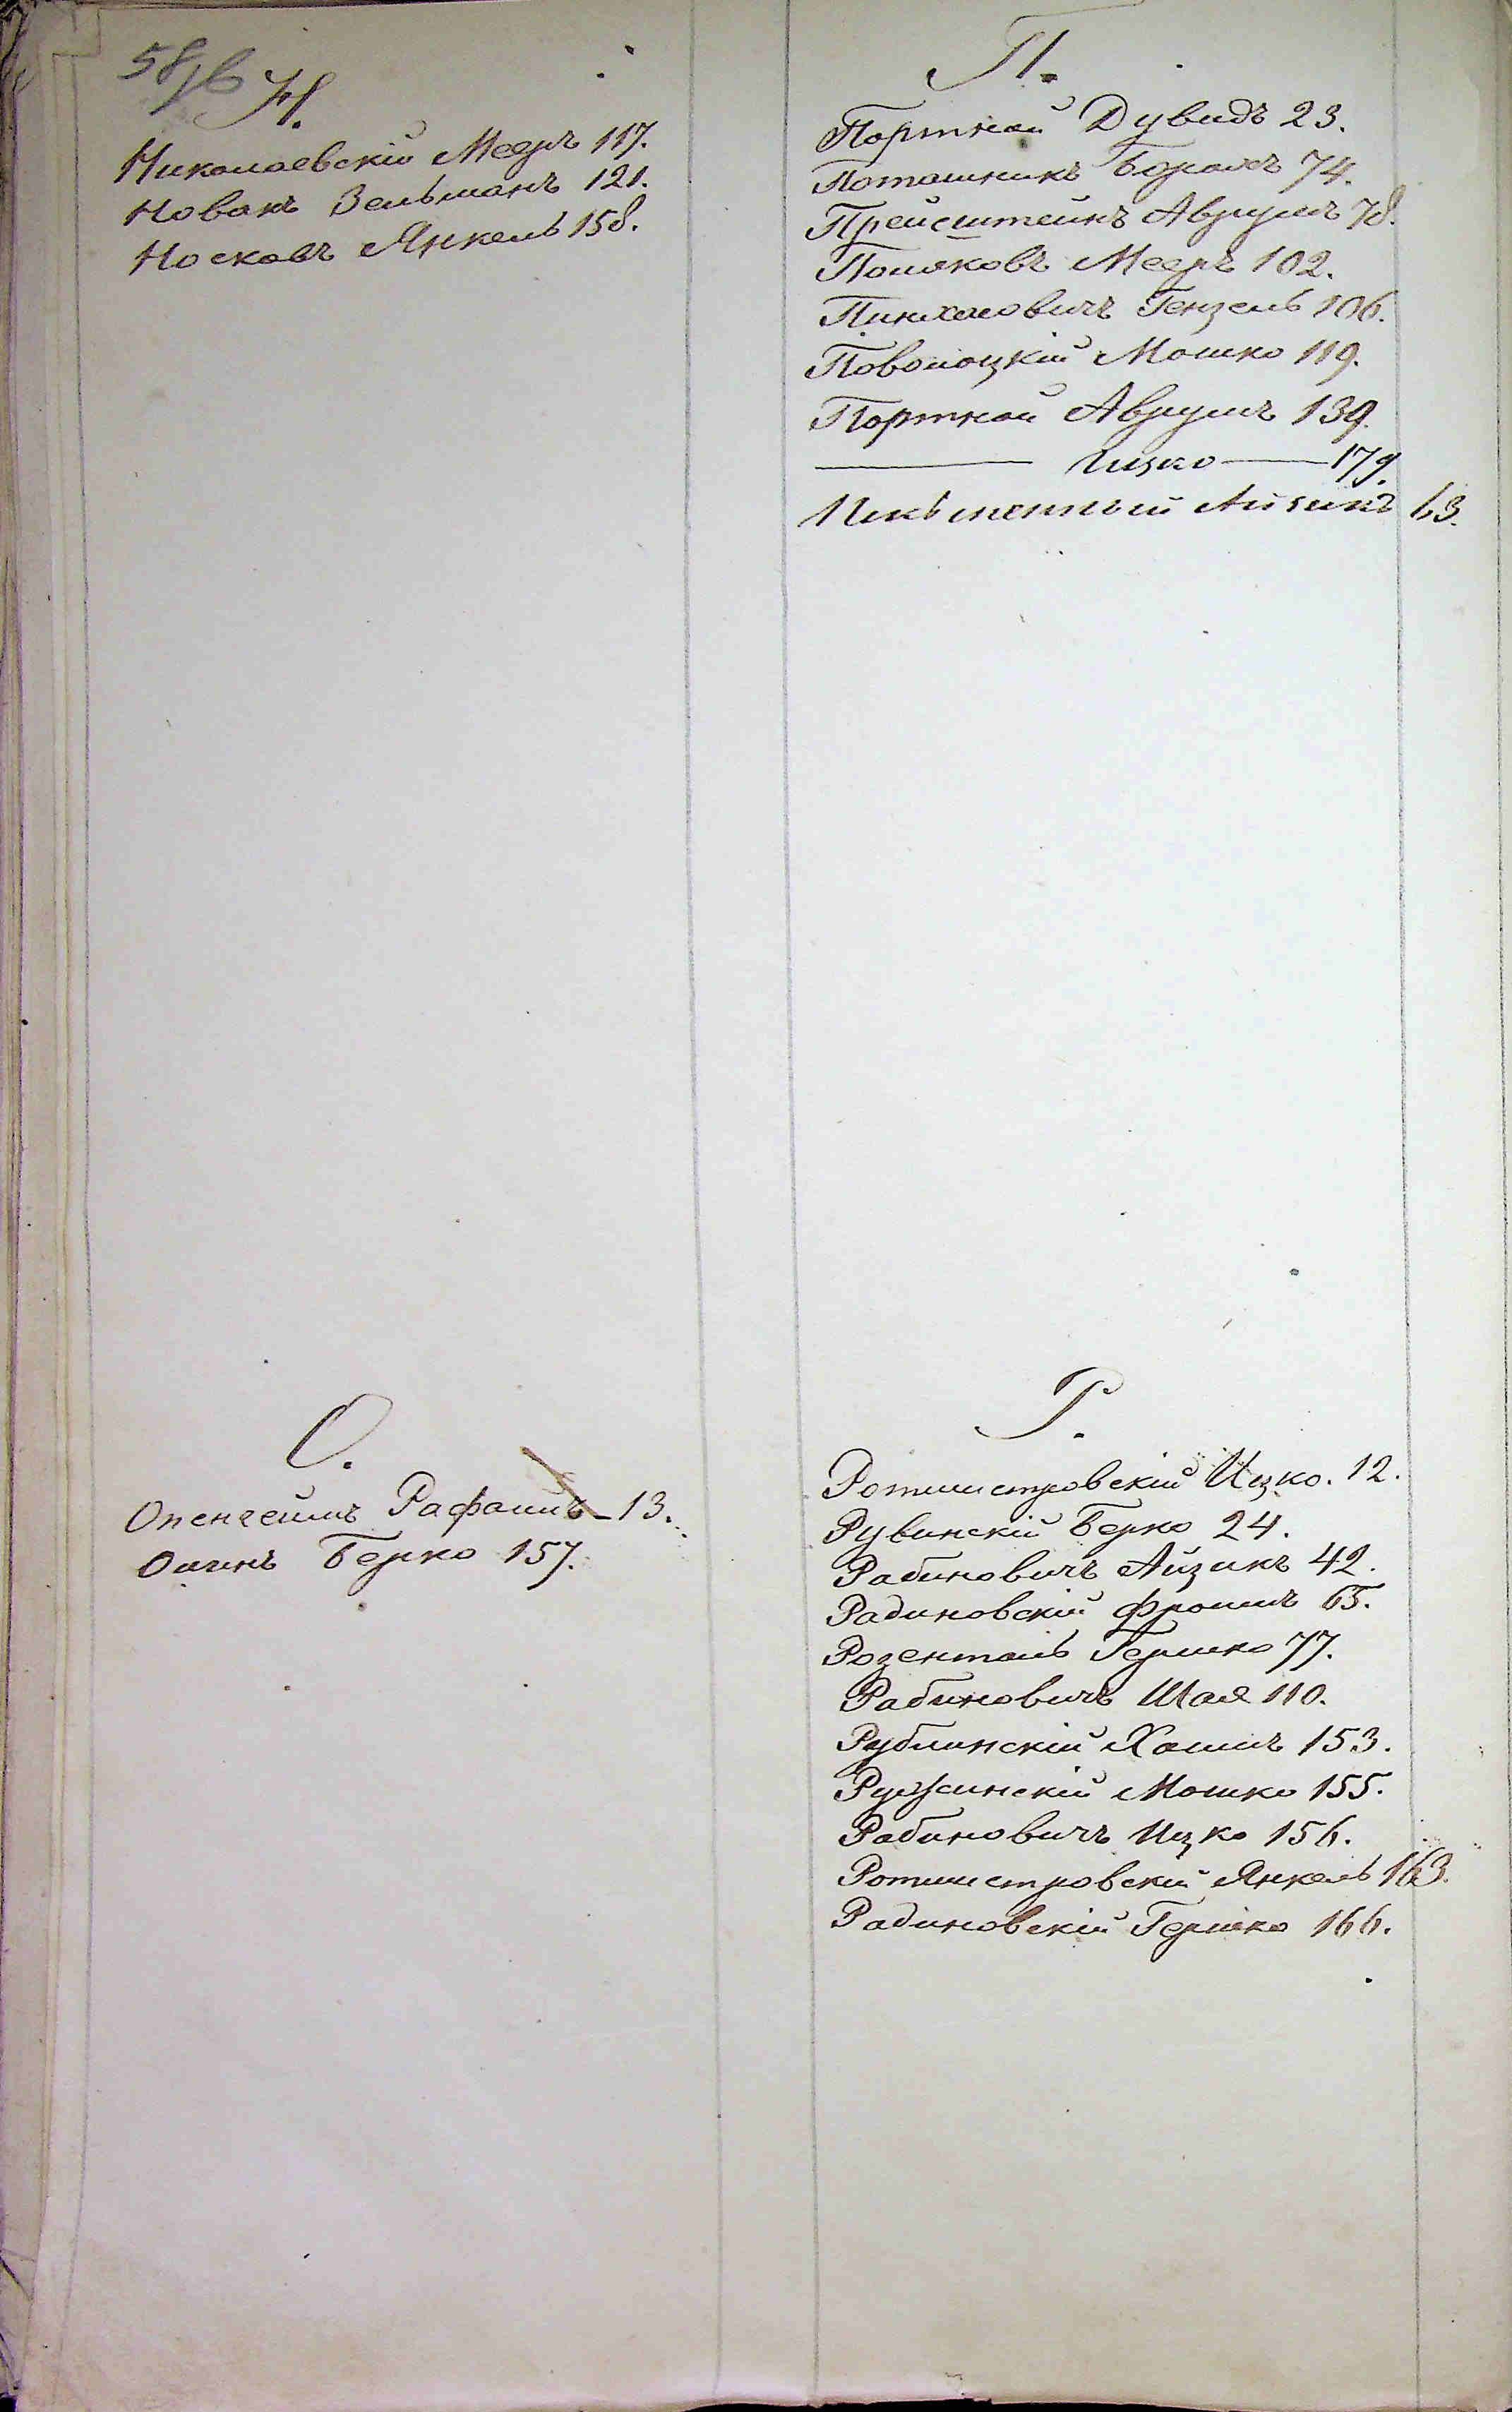 58/6
Н.
Николаевскій Мееръ 117.
Новакъ Зельманъ 121.
Носковъ Янкель 158.
О.
Опенгеимъ Рафаилъ 13.
Берко 157.
П.
Портной Дувидъ 23.
Поташникъ Борохъ 74.
Прейсштейнъ Аврумъ 78.
Поляковъ Мееръ 102.
Пинхасовичъ Гензель 106.
Поволоцкій Мошко 119.
Портной Аврумъ 139.
——— Ицко ——— 179.
Айзикъ 63.
Р.
Ротмистровскій Ицко. 12.
Рувинскій Берко 24.
Рабиновичъ Айзикъ 42.
Радиновскій Фроимъ 65.
Розенталь Гершко 77.
Рабиновичъ Шая 110.
Рублинскій Хаимъ 153.
Ружинскій Мошко 155.
Рабиновичъ Ицко 156.
Ротмистровскій Янкель 163.
Радиновскій Гершко 166.